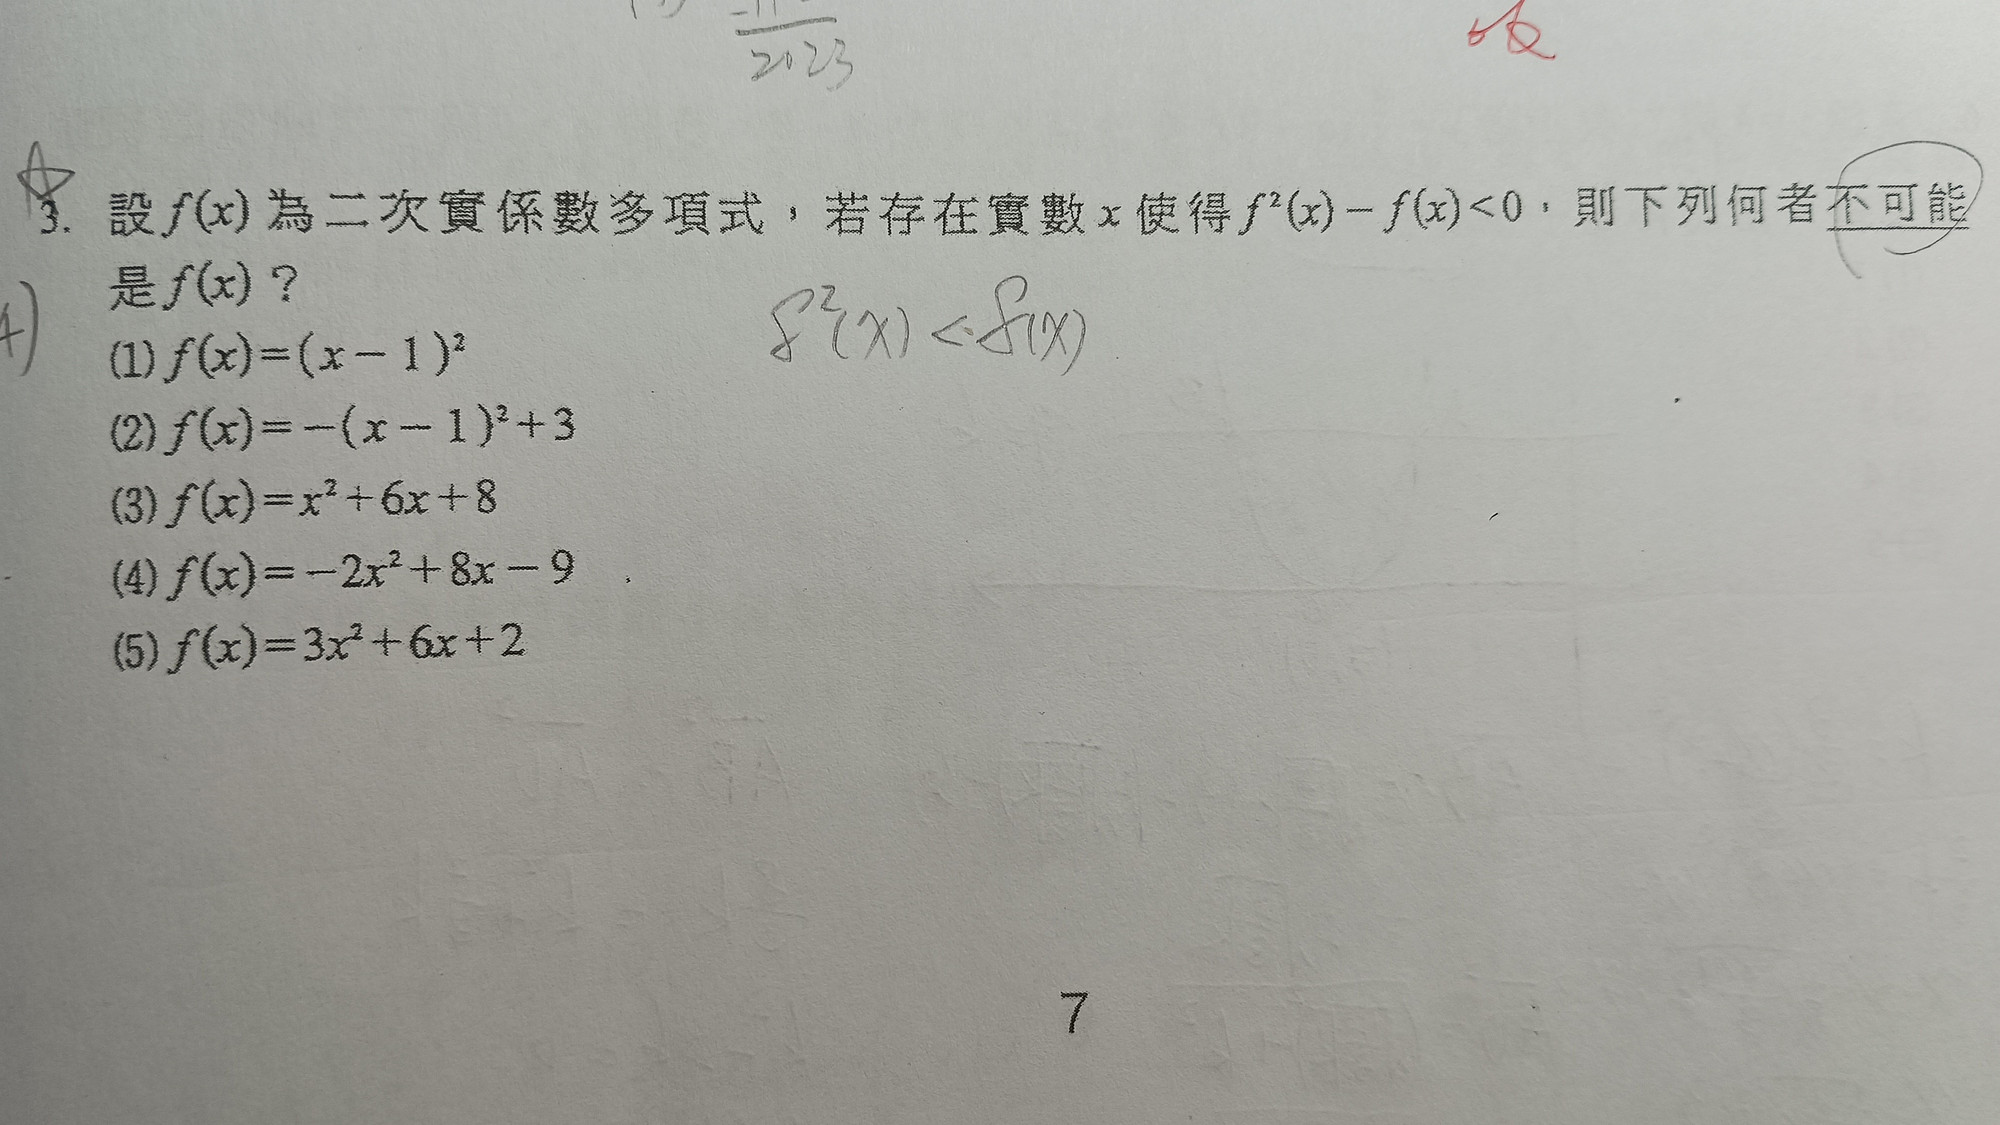 2023
3. 設 f(x) 為二次實係數多項式，若存在實數 x 使得 f²(x)－f(x)<0，則下列何者不可能
是 f(x)？
f²(x) < f(x)
4)
(1) f(x)=(x－1)²
(2) f(x)=－(x－1)²+3
(3) f(x)=x²+6x+8
(4) f(x)=－2x²+8x－9
(5) f(x)=3x²+6x+2
7